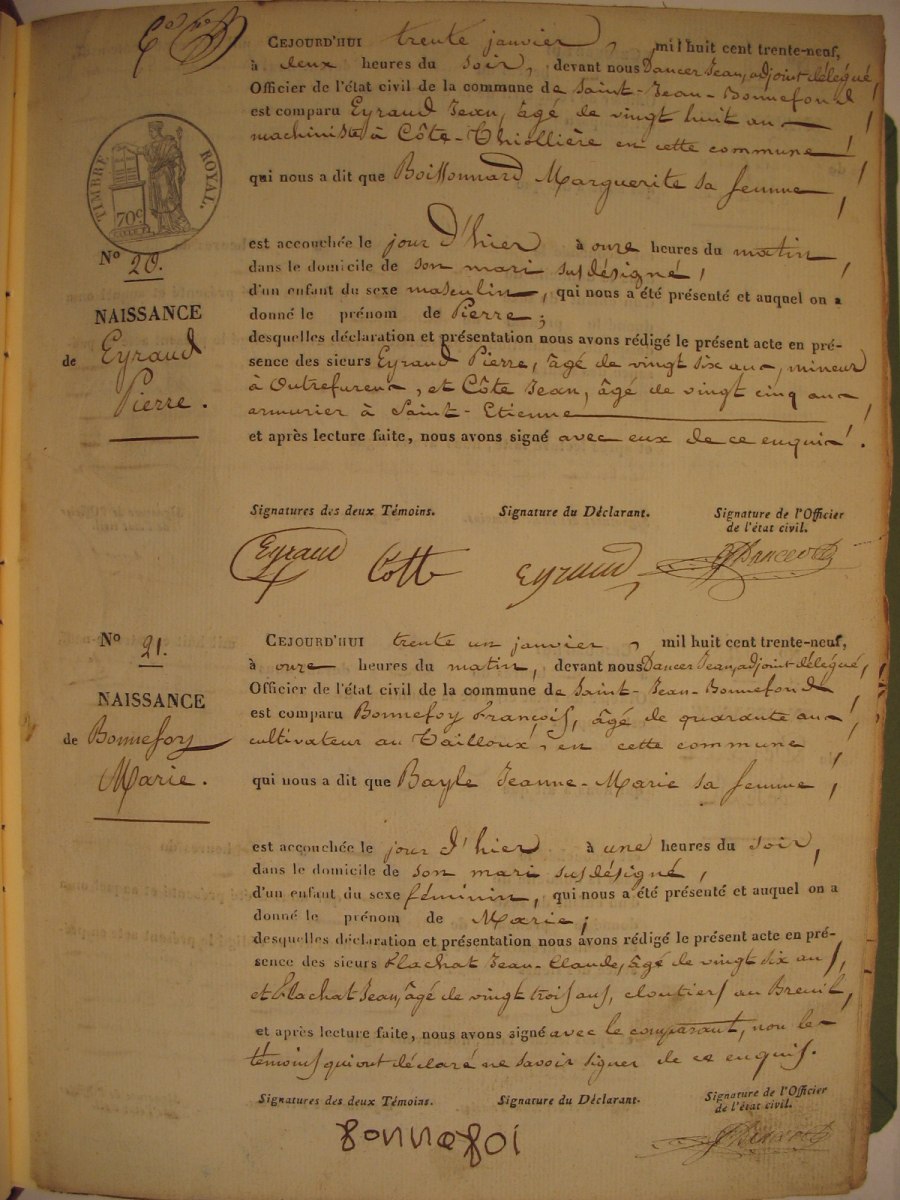 CEJOURD'HUI trente janvier, mil huit cent trente-neuf,
à deux heures du soir, devant nous Dancer Jean, adjoint délégué,
Officier de l'état civil de la commune de Saint-Jean-Bonnefond,
est comparu Eyraud Jean, âgé de vingt huit ans
machiniste à Côte-Thiollière en cette commune,
qui nous a dit que Boissonnard Marguerite sa femme,
TIMBRE ROYAL.
70c
est accouchée le jour d'hier à onze heures du matin,
Nº 20.
dans le domicile de son mari susdésigné,
d'un enfant du sexe masculin, qui nous a été présenté et auquel on a
NAISSANCE
donné le prénom de Pierre;
desquelles déclaration et présentation nous avons rédigé le présent acte en pré-
de Eyraud
sence des sieurs Eyraud Pierre, âgé de vingt six ans, mineur
à Outrefurens, et Côte Jean, âgé de vingt cinq ans
Pierre.
armurier à Saint-Etienne
et après lecture faite, nous avons signé avec eux de ce enquis.
Signatures des deux Témoins. Signature du Déclarant. Signature de l'Officier
de l'état civil.
Eyraud Cott Eyraud
Nº 21.
CEJOURD'HUI trente un janvier, mil huit cent trente-neuf,
à onze heures du matin, devant nous Dancer Jean, adjoint délégué,
Officier de l'état civil de la commune de Saint-Jean-Bonnefond,
NAISSANCE
est comparu Bonnefoy François, âgé de quarante ans
de Bonnefoy
cultivateur au Tailloux, en cette commune
Marie.
qui nous a dit que Bayle Jeanne-Marie sa femme,
est accouchée le jour d'hier à une heures du soir,
dans le domicile de son mari susdésigné,
d'un enfant du sexe féminin, qui nous a été présenté et auquel on a
donné le prénom de Marie;
desquelles déclaration et présentation nous avons rédigé le présent acte en pré-
sence des sieurs Flachat Jean-Claude, âgé de vingt six ans,
et Flachat Jean, âgé de vingt trois ans, cloutiers au Breuil,
et après lecture faite, nous avons signé avec le comparant, non les
témoins qui ont déclaré ne savoir signer de ce enquis.
Signatures des deux Témoins. Signature du Déclarant. Signature de l'Officier
de l'état civil.
bonnefoi